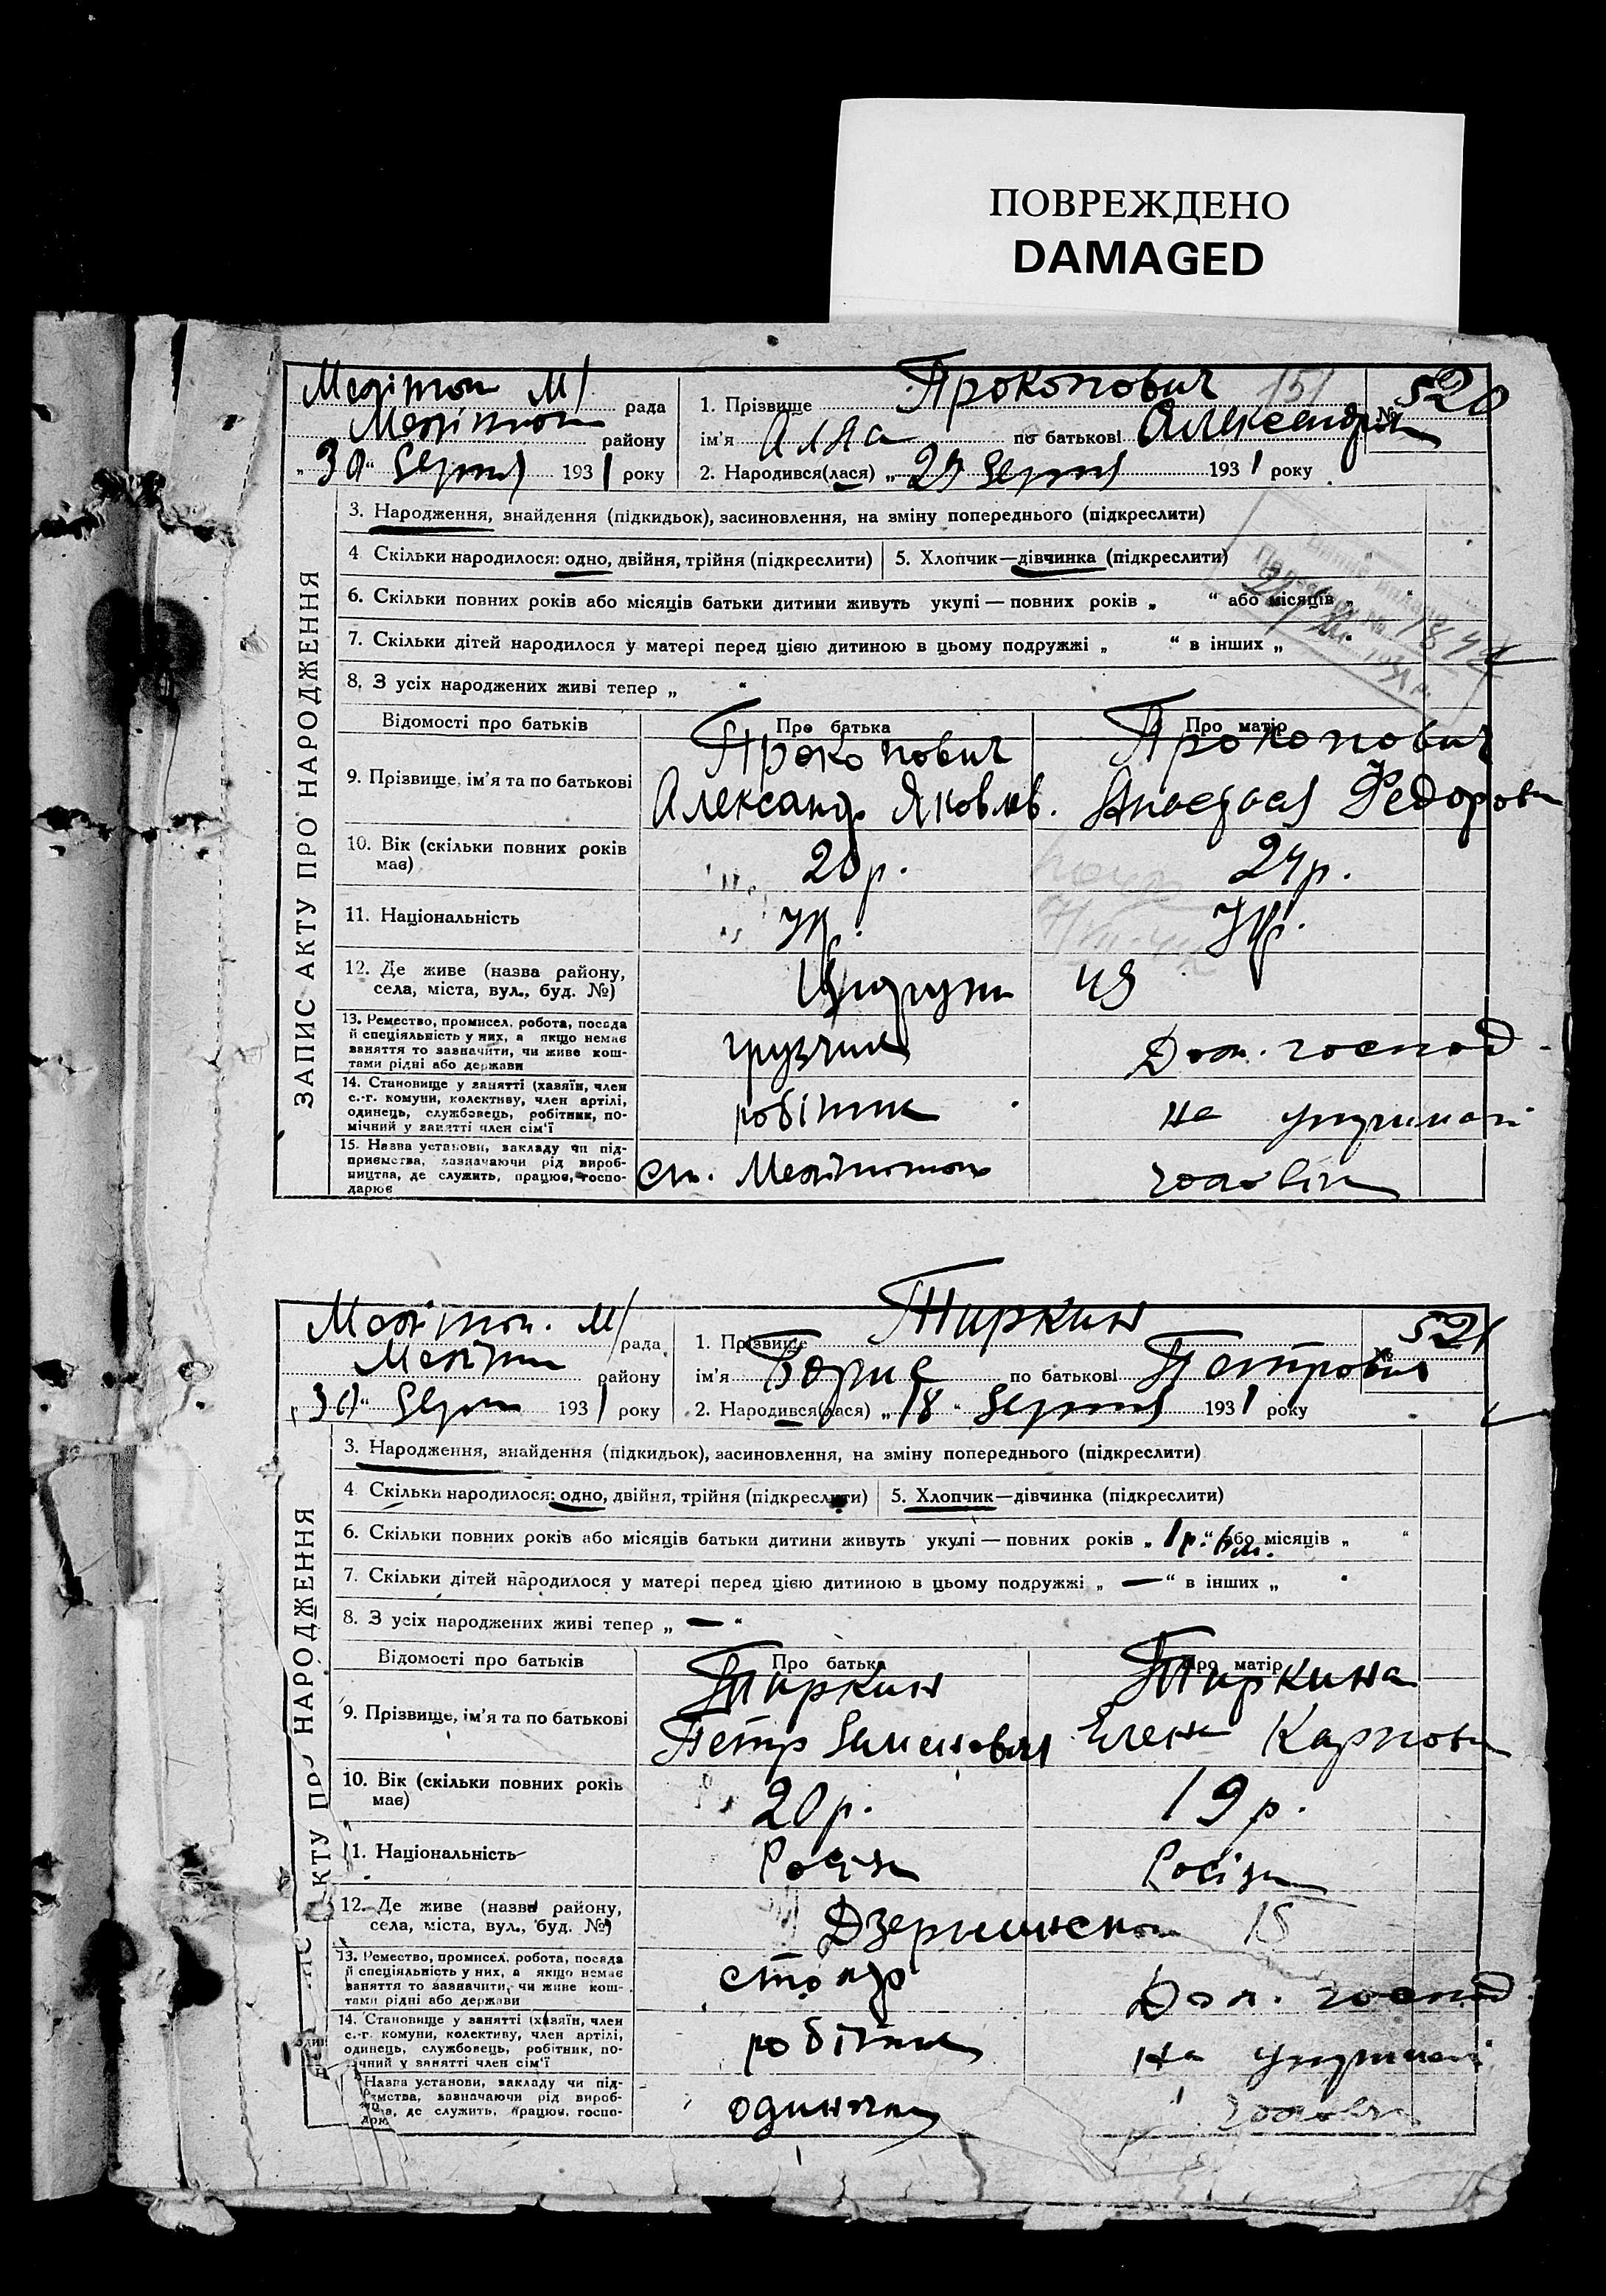 ПОВРЕЖДЕНО
DAMAGED
Меліт М/ рада
району
"30" Серпня 1931 року
1. Прізвище Прокопович 151
№ 520
ім'я Алла по батькові Александр
2. Народився(лася) „29 Серпня 1931 року
ЗАПИС АКТУ ПРО НАРОДЖЕННЯ
3. Народження, знайдення (підкидьок), засиновлення, на зміну попереднього (підкреслити)
4 Скільки народилося: одно, двійня, трійня (підкреслити)
5. Хлопчик—дівчинка (підкреслити)
6. Скільки повних років або місяців батьки дитини живуть укупі — повних років „ “ або місяців „ “
7. Скільки дітей народилося у матері перед цією дитиною в цьому подружжі „ “ в інших „
8. З усіх народжених живі тепер „ “
Відомості про батьків
Про батька
Про матір
9. Прізвище, ім'я та по батькові
Прокопович
Александр Яковлев.
Прокопович
Анастасія Федоровн
10. Вік (скільки повних років
має)
20 р.
24 р.
11. Національність
Ук.
Ук.
12. Де живе (назва району,
села, міста, вул., буд. №)
49
13. Ремество, промисел, робота, посада
й спеціяльність у них, а якщо немає
заняття то зазначити, чи живе кош-
тами рідні або держави
грузчик
Дом. господ.
14. Становище у занятті (хазяїн, член
с.-г. комуни, колективу, член артілі,
одинець, службовець, робітник, по-
мічний у занятті член сім'ї
робітник
на утриманні
15. Назва установи, закладу чи під-
приємства, зазначаючи рід вироб-
ництва, де служить, працює, госпо-
дарює
ст. Мелітополь
чоловіка
Меліт. М/ рада
району
"30" Серпн 1931 року
1. Прізвище Тиркин
№ 521
ім'я Борис по батькові Петрович
2. Народився(лася) „18“ Серпня 1931 року
НАРОДЖЕННЯ
3. Народження, знайдення (підкидьок), засиновлення, на зміну попереднього (підкреслити)
4 Скільки народилося: одно, двійня, трійня (підкреслити)
5. Хлопчик—дівчинка (підкреслити)
6. Скільки повних років або місяців батьки дитини живуть укупі — повних років „1р.“ 6м. або місяців „ “
7. Скільки дітей народилося у матері перед цією дитиною в цьому подружжі „—“ в інших „
8. З усіх народжених живі тепер „—“
Відомості про батьків
Про батька
Про матір
9. Прізвище, ім'я та по батькові
Тиркин
Петр Семенович
Тиркина
Елена Карповн
10. Вік (скільки повних років
має)
20 р.
19 р.
11. Національність
Росіян
Росіян
12. Де живе (назва району,
села, міста, вул., буд. №)
Дзержинского 18
13. Ремество, промисел, робота, посада
й спеціяльність у них, а якщо немає
заняття то зазначити, чи живе кош-
тами рідні або держави
столяр
Дом. господ.
14. Становище у занятті (хазяїн, член
с.-г. комуни, колективу, член артілі,
одинець, службовець, робітник, по-
мічний у занятті член сім'ї
робітник
на утриманні
Назва установи, закладу чи під-
приємства, зазначаючи рід вироб-
ництва, де служить, працює, госпо-
дарює
одиночка
чоловіка